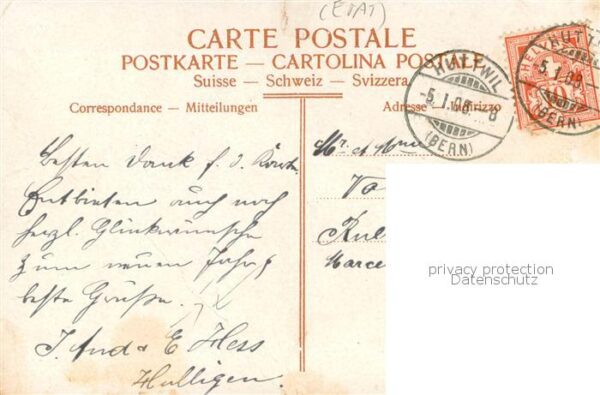 (ETAT)
CARTE POSTALE
POSTKARTE — CARTOLINA POSTALE
Suisse — Schweiz — Svizzera
Correspondance — Mitteilungen
Adresse — Indirizzo
HUTTWIL
-5.I.08. 8
(BERN)
HUTTWIL
-5.I.08.
(BERN)
HELVETIA
10
Besten Dank f. d. Karte
Entbieten auch noch
herzl. Glückwünsche
zum neuen Jahr &
beste Grüsse.
J. And. & E Hess
Hulligen.
Mr. et Mme
Marce
privacy protection
Datenschutz